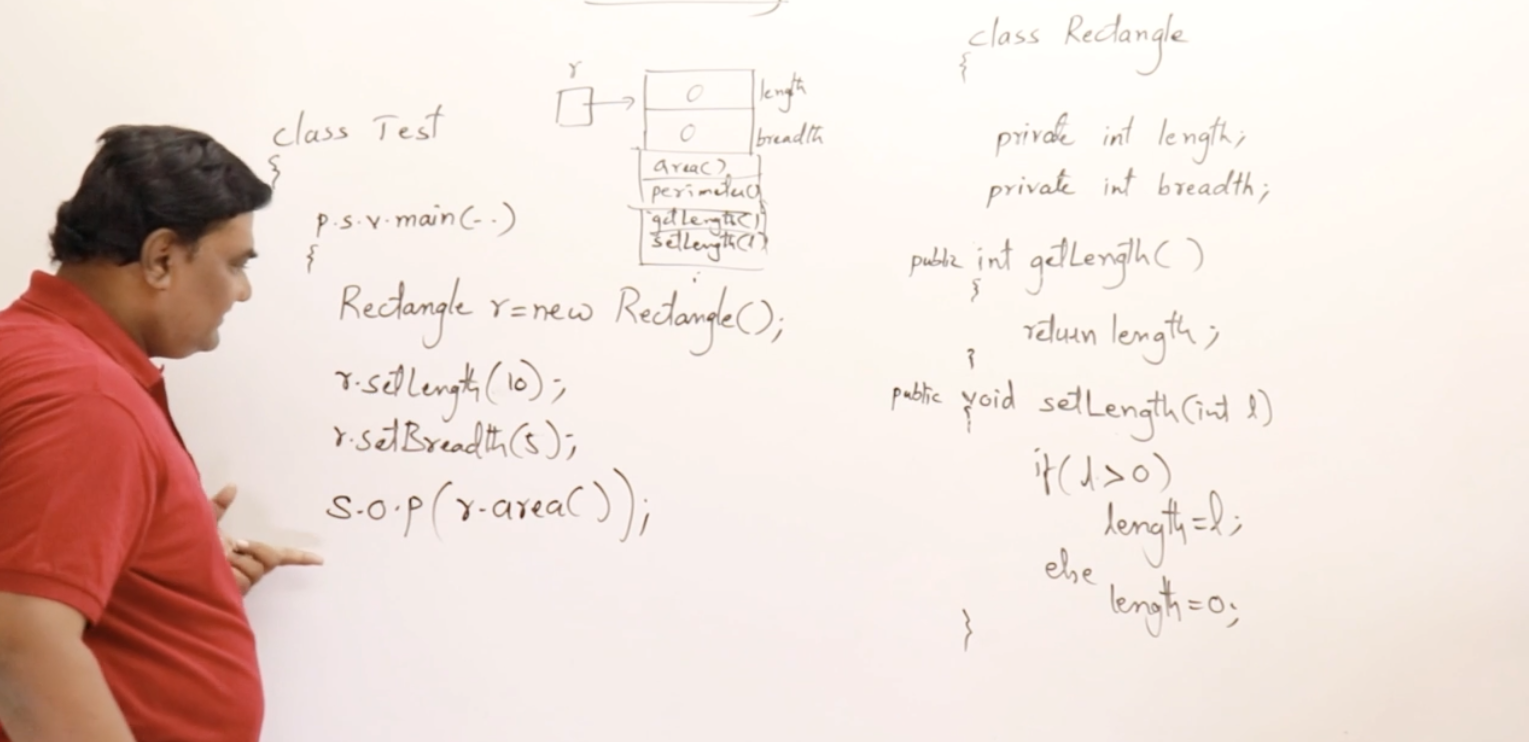 class Test
{
p.s.v.main(--)
{
Rectangle r=new Rectangle();
r.setLength(10);
r.setBreadth(5);
S.O.P(r.area());
r
0 length
0 breadth
area()
perimeter()
getLength()
setLength()
class Rectangle
{
private int length;
private int breadth;
public int getLength()
{
return length;
}
public void setLength(int l)
{
if(l>0)
length=l;
else
length=0;
}